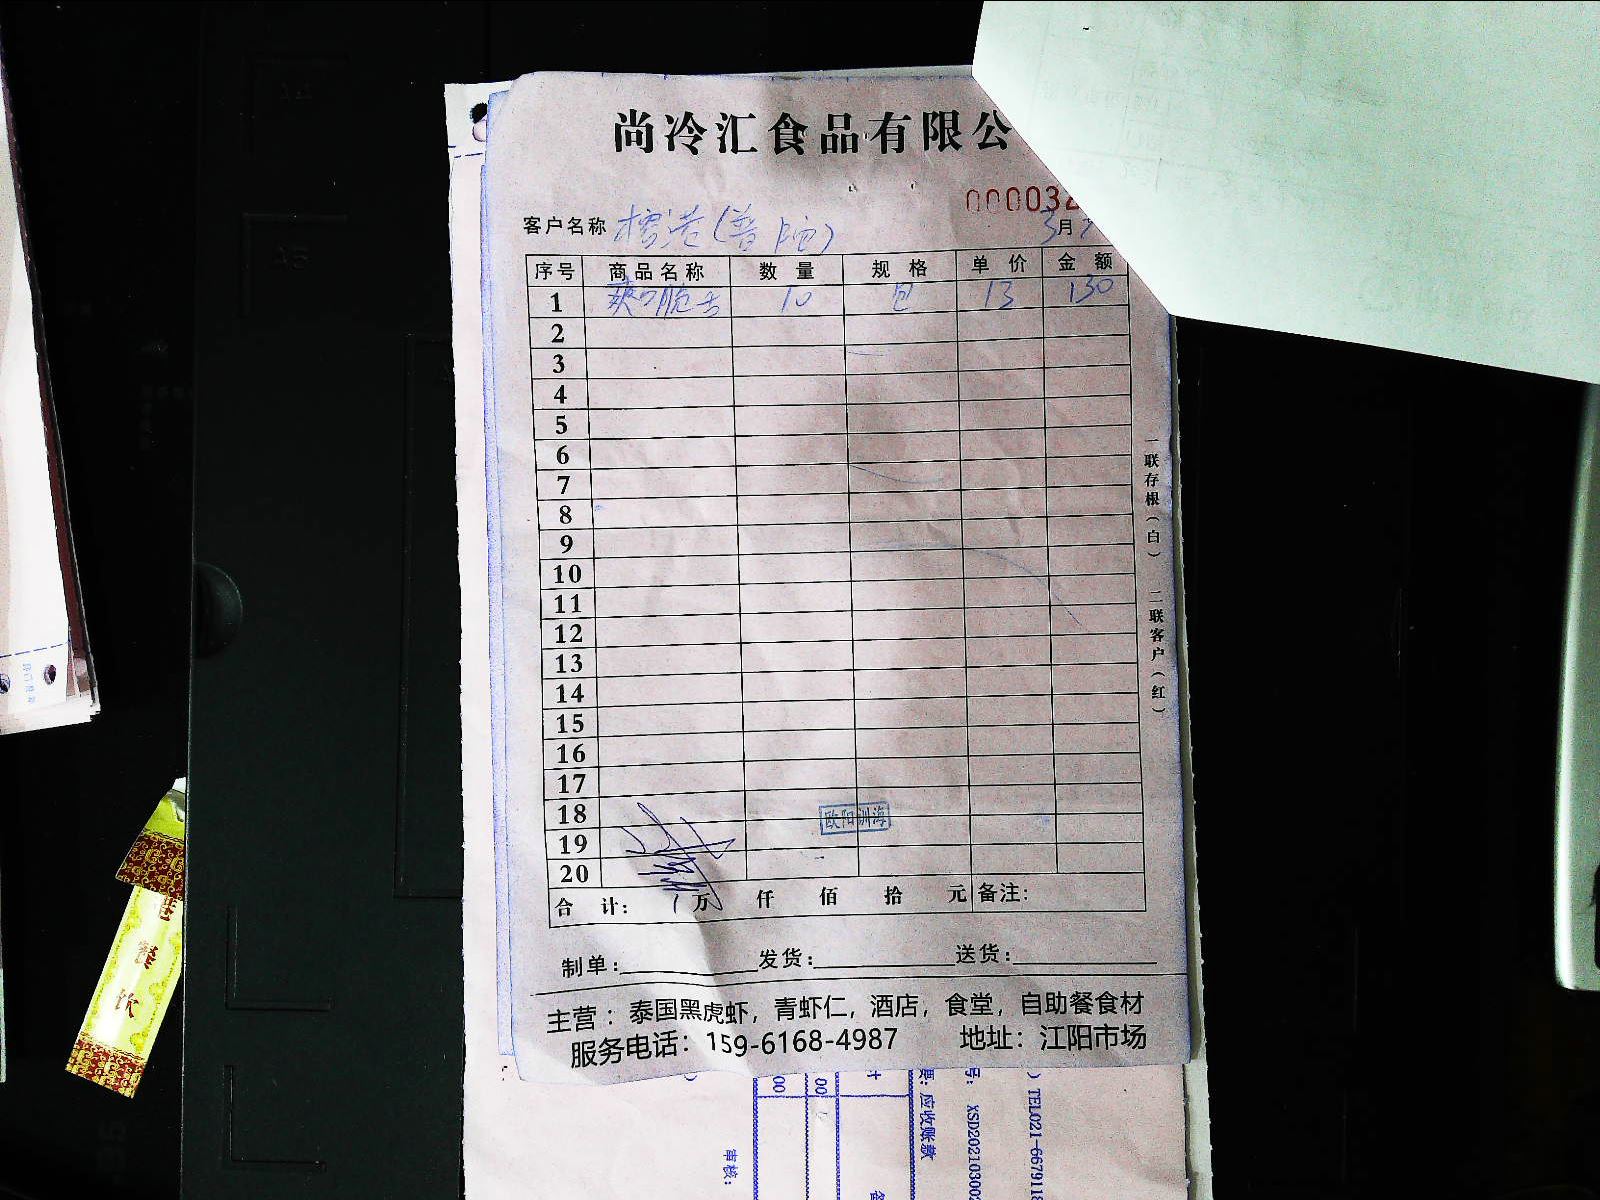 尚冷汇食品有限公
00003
客户名称 檀港(普陀) 3月
序号 商品名称 数量 规格 单价 金额
1 爽口脆舌 10 包 13 130
2
3
4
5
6
7
8
9
10
11
12
13
14
15
16
17
18
欧阳训海
19
20
合 计: 万 仟 佰 拾 元 备注:
一联存根(白) 二联客户(红)
制单: 发货: 送货:
主营:泰国黑虎虾,青虾仁,酒店,食堂,自助餐食材
服务电话:159-6168-4987 地址:江阳市场
00
00
计
应收账款
号: XSD20210300
)TEL021-6679118
审核:
餐
饮
A5